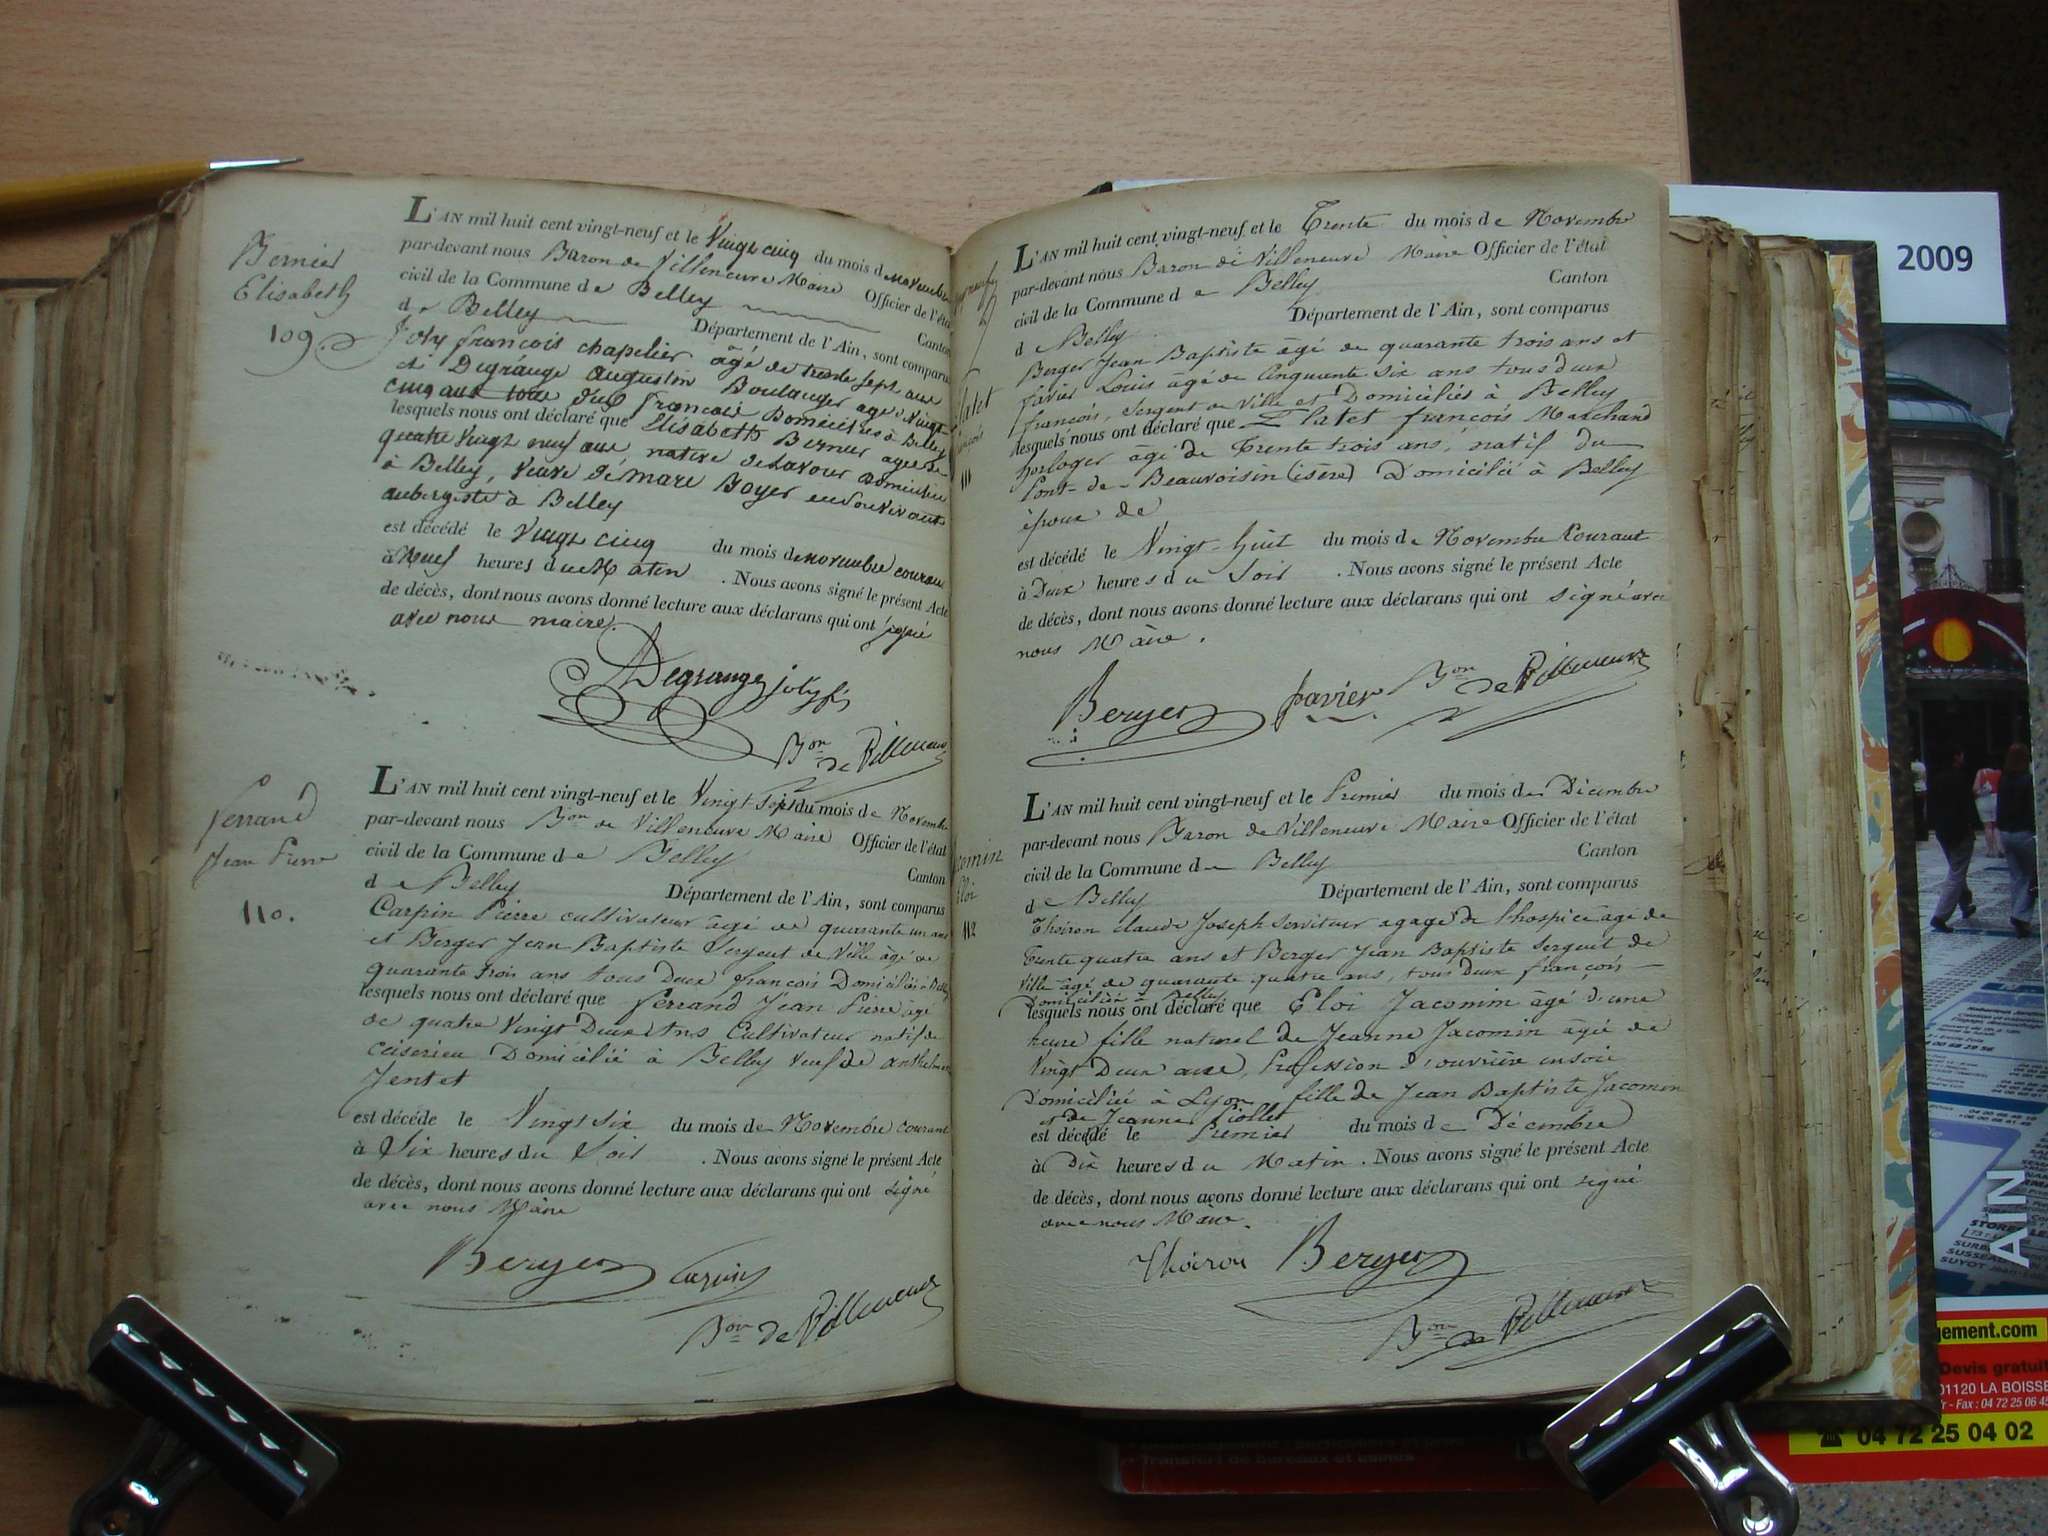 Bernier
Elisabeth
109.
L'AN mil huit cent vingt-neuf et le Vingt cinq du mois de novembre
par-devant nous Baron de Villeneuve Maire Officier de l'état
civil de la Commune de Belley Canton
de Belley Département de l'Ain, sont comparus
Joly françois chapelier âgé de trente sept ans
et Degrange Augustin Boulanger age de vingt
cinq ans tous deux francois Domiciliés à Belley
lesquels nous ont déclaré que Elisabeth Bernier agée de
quatre vingt neuf ans, native de Lavour Domiciliée
à Belley, veuve de Marc Boyer en son vivant
aubergiste à Belley
est décédé le Vingt cinq du mois de novembre courant
à Neuf heures du Matin . Nous avons signé le présent Acte
de décès, dont nous avons donné lecture aux déclarans qui ont signé
avec nous maire.
Degrange joly fs
Bon de Villeneuve
ferrand
Jean Pierre
110.
L'AN mil huit cent vingt-neuf et le Vingt Sept du mois de Novembre
par-devant nous Bon de Villeneuve Maire Officier de l'état
civil de la Commune de Belley Canton
de Belley Département de l'Ain, sont comparus
Carpin Pierre cultivateur âgé de quarante un ans
et Berger Jean Baptiste Sergent de Ville âgé de
quarante trois ans tous Deux françois Domiciliés à Belley
lesquels nous ont déclaré que ferrand Jean Pierre âgé
de quatre Vingt Deux Ans Cultivateur natif de
Ceiserieu Domicilié à Belley veuf de anthelmette
Jentet
est décédé le Vingt six du mois de Novembre courant
à Six heures du Soir . Nous avons signé le présent Acte
de décès, dont nous avons donné lecture aux déclarans qui ont signé
avec nous Maire
Berger Carpin
Bon de Villeneuve
111
L'AN mil huit cent vingt-neuf et le Trente du mois de Novembre
par-devant nous Baron de Villeneuve Maire Officier de l'état
civil de la Commune de Belley Canton
de Belley Département de l'Ain, sont comparus
Berger Jean Baptiste âgé de quarante trois ans et
favier Louis âgé de Cinquante Six ans tous deux
françois, Sergent de Ville et Domiciliés à Belley
lesquels nous ont déclaré que Platet françois Marchand
horloger âgé de Trente trois ans, natif du
Pont-de-Beauvoisin (isère) Domicilié à Belley
époux de
est décédé le Vingt-huit du mois de Novembre Courant
à Deux heures du Soir . Nous avons signé le présent Acte
de décès, dont nous avons donné lecture aux déclarans qui ont signé avec
nous Maire.
Berger favier Bon de Villeneuve
112
L'AN mil huit cent vingt-neuf et le Premier du mois de Décembre
par-devant nous Baron de Villeneuve Maire Officier de l'état
civil de la Commune de Belley Canton
de Belley Département de l'Ain, sont comparus
Thoiron Claude Joseph Serviteur agagé de l'hospice âgé de
Trente quatre ans et Berger Jean Baptiste Sergent de
Ville âgé de quarante quatre ans, tous Deux françois
Domiciliés à Belley
lesquels nous ont déclaré que Eloi Jacomin âgé d'une
heure fille naturel de Jeanne Jacomin âgée de
Vingt Deux ans, Profession d'ouvrière en soie
Domiciliée à Lyon fille de Jean Baptiste Jacomin
et de Jeanne Piollet
est décédé le Premier du mois de Décembre
à Dix heures du Matin . Nous avons signé le présent Acte
de décès, dont nous avons donné lecture aux déclarans qui ont signé
avec nous Maire.
Thoiron Berger
Bon de Villeneuve
2009
AIN
gement.com
Devis gratuit
01120 LA BOISSE
Fax : 04 72 25 06 45
04 72 25 04 02